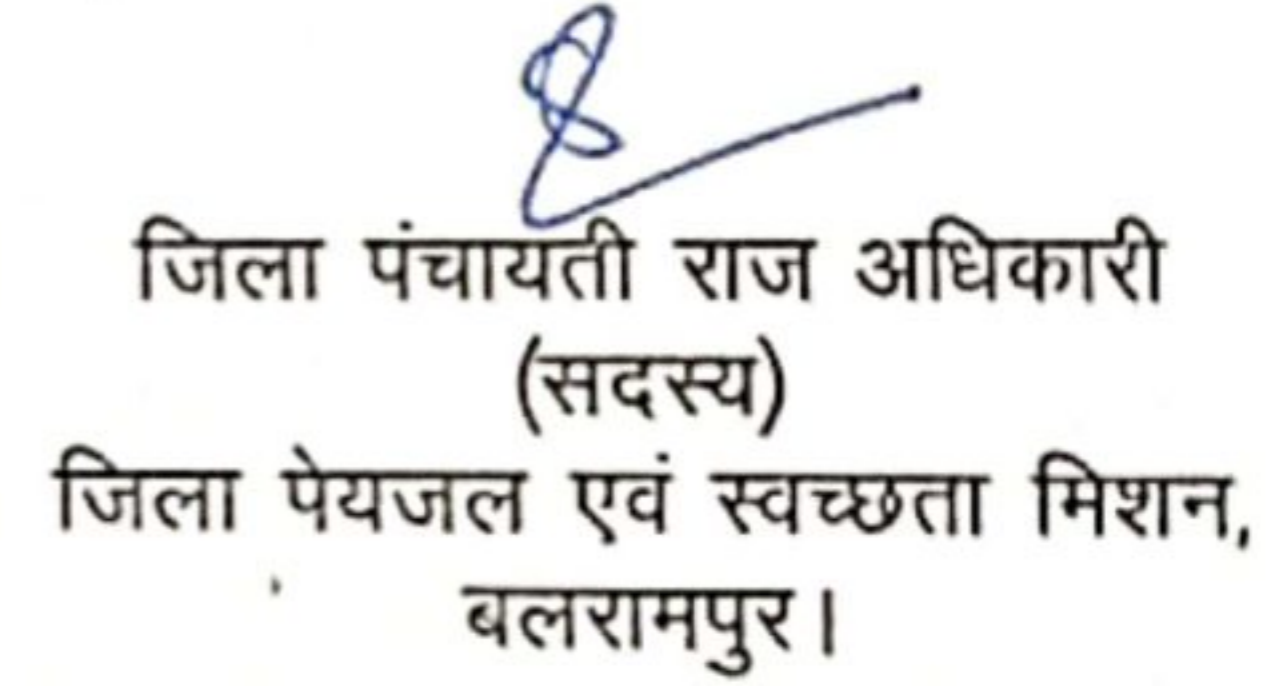 जिला पंचायती राज अधिकारी
(सदस्य)
जिला पेयजल एवं स्वच्छता मिशन,
बलरामपुर।